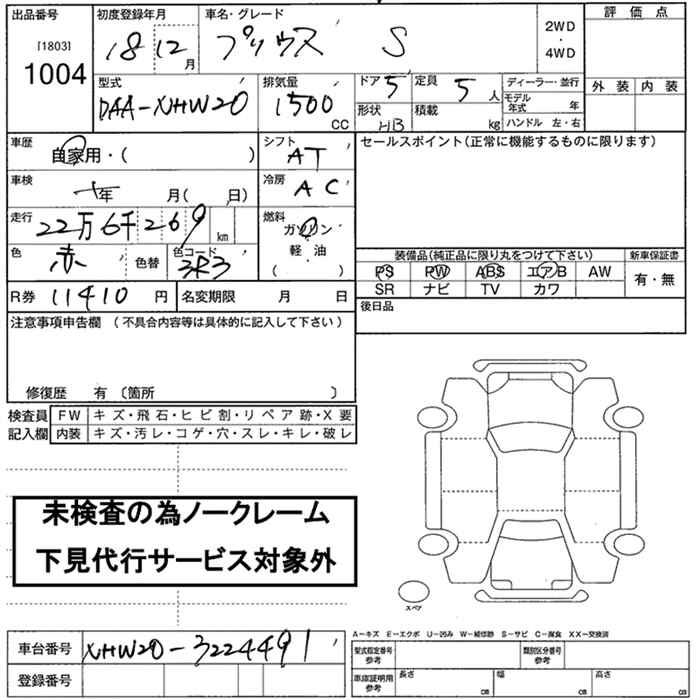 出品番号 初度登録年月 車名・グレード 2WD 評価点
[1803] 18 12月 プリウス S ・
1004 4WD
型式 排気量 ドア 5 定員 5人 ディーラー・並行 外装 内装
DAA-NHW20 1500 CC モデル年式 年
形状 HB 積載 kg ハンドル 左・右
車歴 自家用・( ) シフト AT セールスポイント(正常に機能するものに限ります)
車検 年 月( 日) 冷房 AC
走行 22万6千269 km 燃料 ガソリン
色 赤 色替 色コード 3R3 軽・油
( )
装備品(純正品に限り丸をつけて下さい) 新車保証書
PS PW ABS エアB AW 有・無
SR ナビ TV カワ
R券 11410円 名変期限 月 日 後日品
注意事項申告欄 (不具合内容等は具体的に記入して下さい)
修復歴 有 〔箇所 〕
検査員 FW キズ・飛石・ヒビ割・リペア跡・X要
記入欄 内装 キズ・汚レ・コゲ・穴・スレ・キレ・破レ
未検査の為ノークレーム
下見代行サービス対象外
スペア
A-キズ E-エクボ U-凹み W-補修跡 S-サビ C-腐食 XX-交換済
車台番号 NHW20-3224491 型式指定番号 参考 類別区分番号 参考
登録番号 車庫証明用 参考 長さ cm 幅 cm 高さ cm